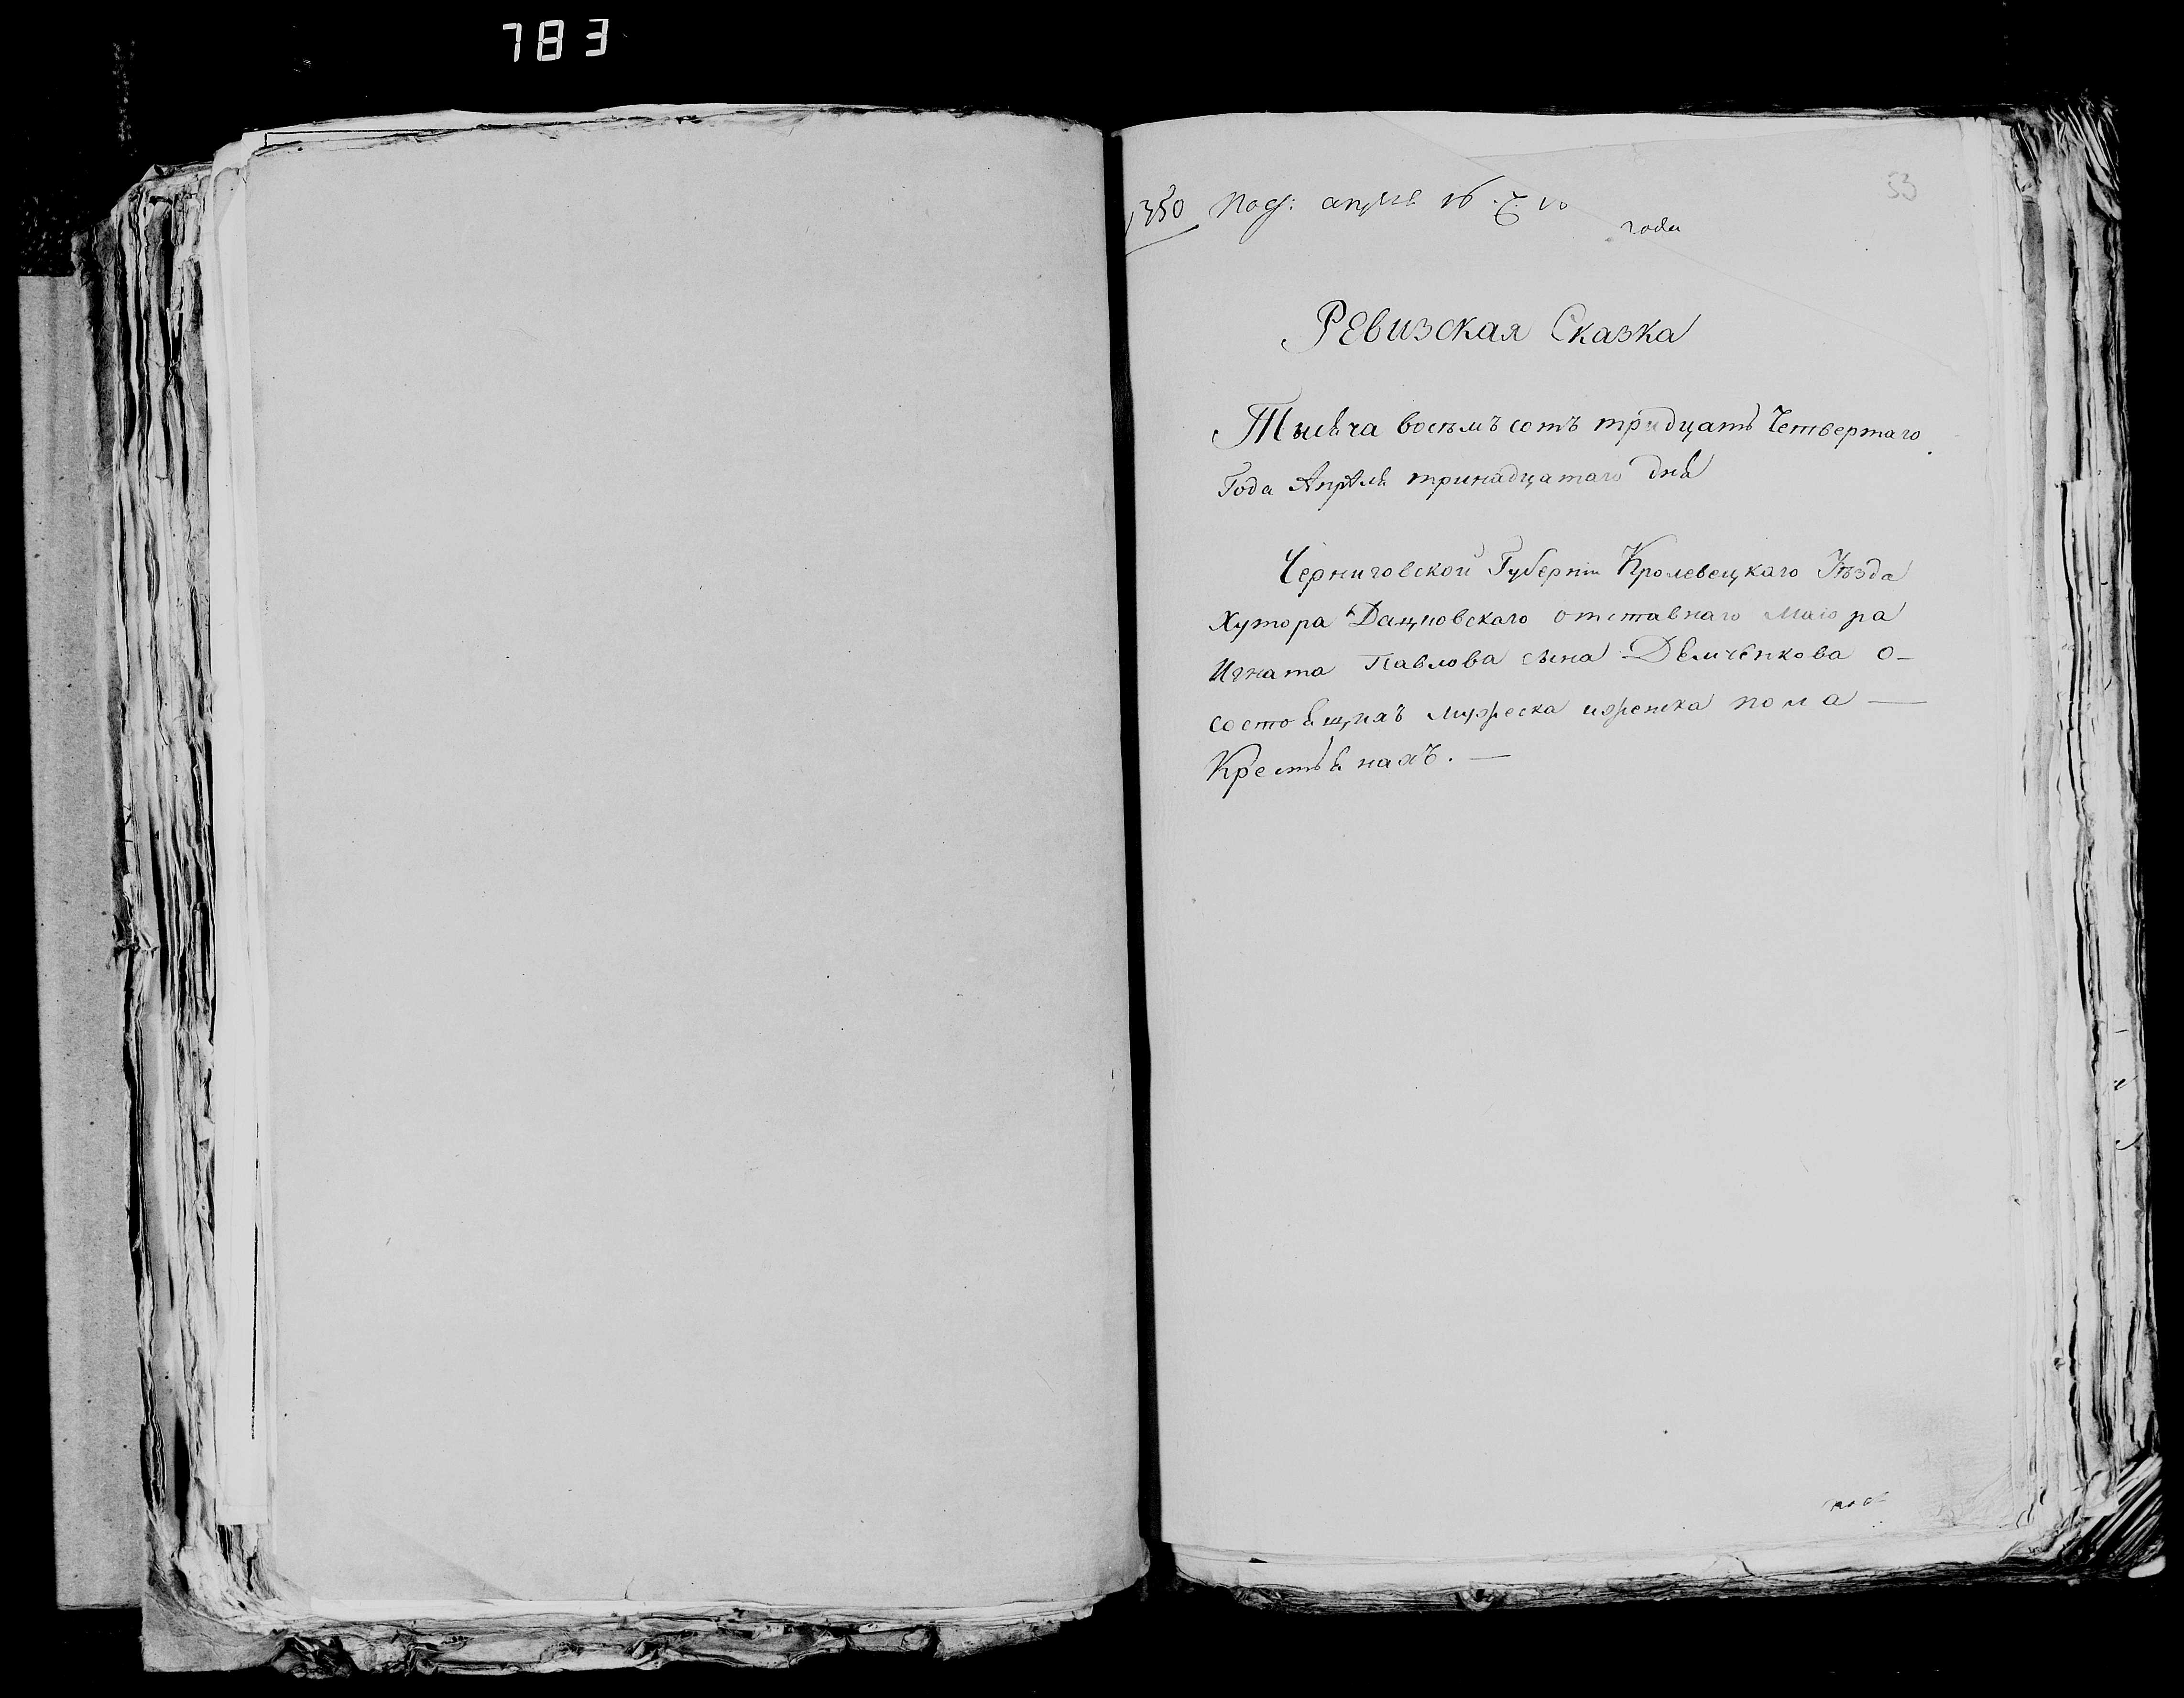 783
53
1350 апреля 16
года
Ревизская Сказка
Тысяча восемъ сотъ тридцать Четвертаго
Года Апреля тринадцатаго дня
Черниговской Губерніи Кролевецкаго Уезда
Хутора отставнаго Маіора
Игната Павлова сына Демченкова о-
состоящихъ мужеска иженска пола —
Крестьянахъ. —